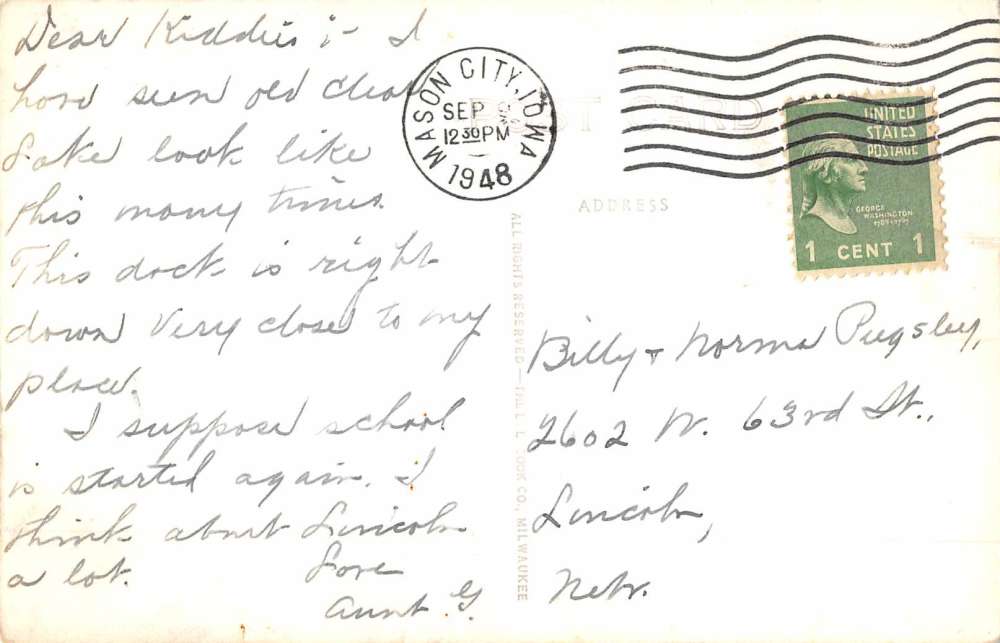 Dear Kiddies :- I
have seen old Clear
Lake look like
this many times.
This dock is right
down very close to my
place.
I suppose school
is started again. I
think about Lincoln
a lot.
Love
Aunt G.
MASON CITY, IOWA
SEP
12 30 PM
1948
POST CARD
ADDRESS
UNITED
STATES
POSTAGE
GEORGE
WASHINGTON
1789-1797
1 CENT 1
ALL RIGHTS RESERVED — THE L. L. COOK CO., MILWAUKEE
Billy & Norma Pugsley,
2602 N. 63rd St.,
Lincoln,
Nebr.